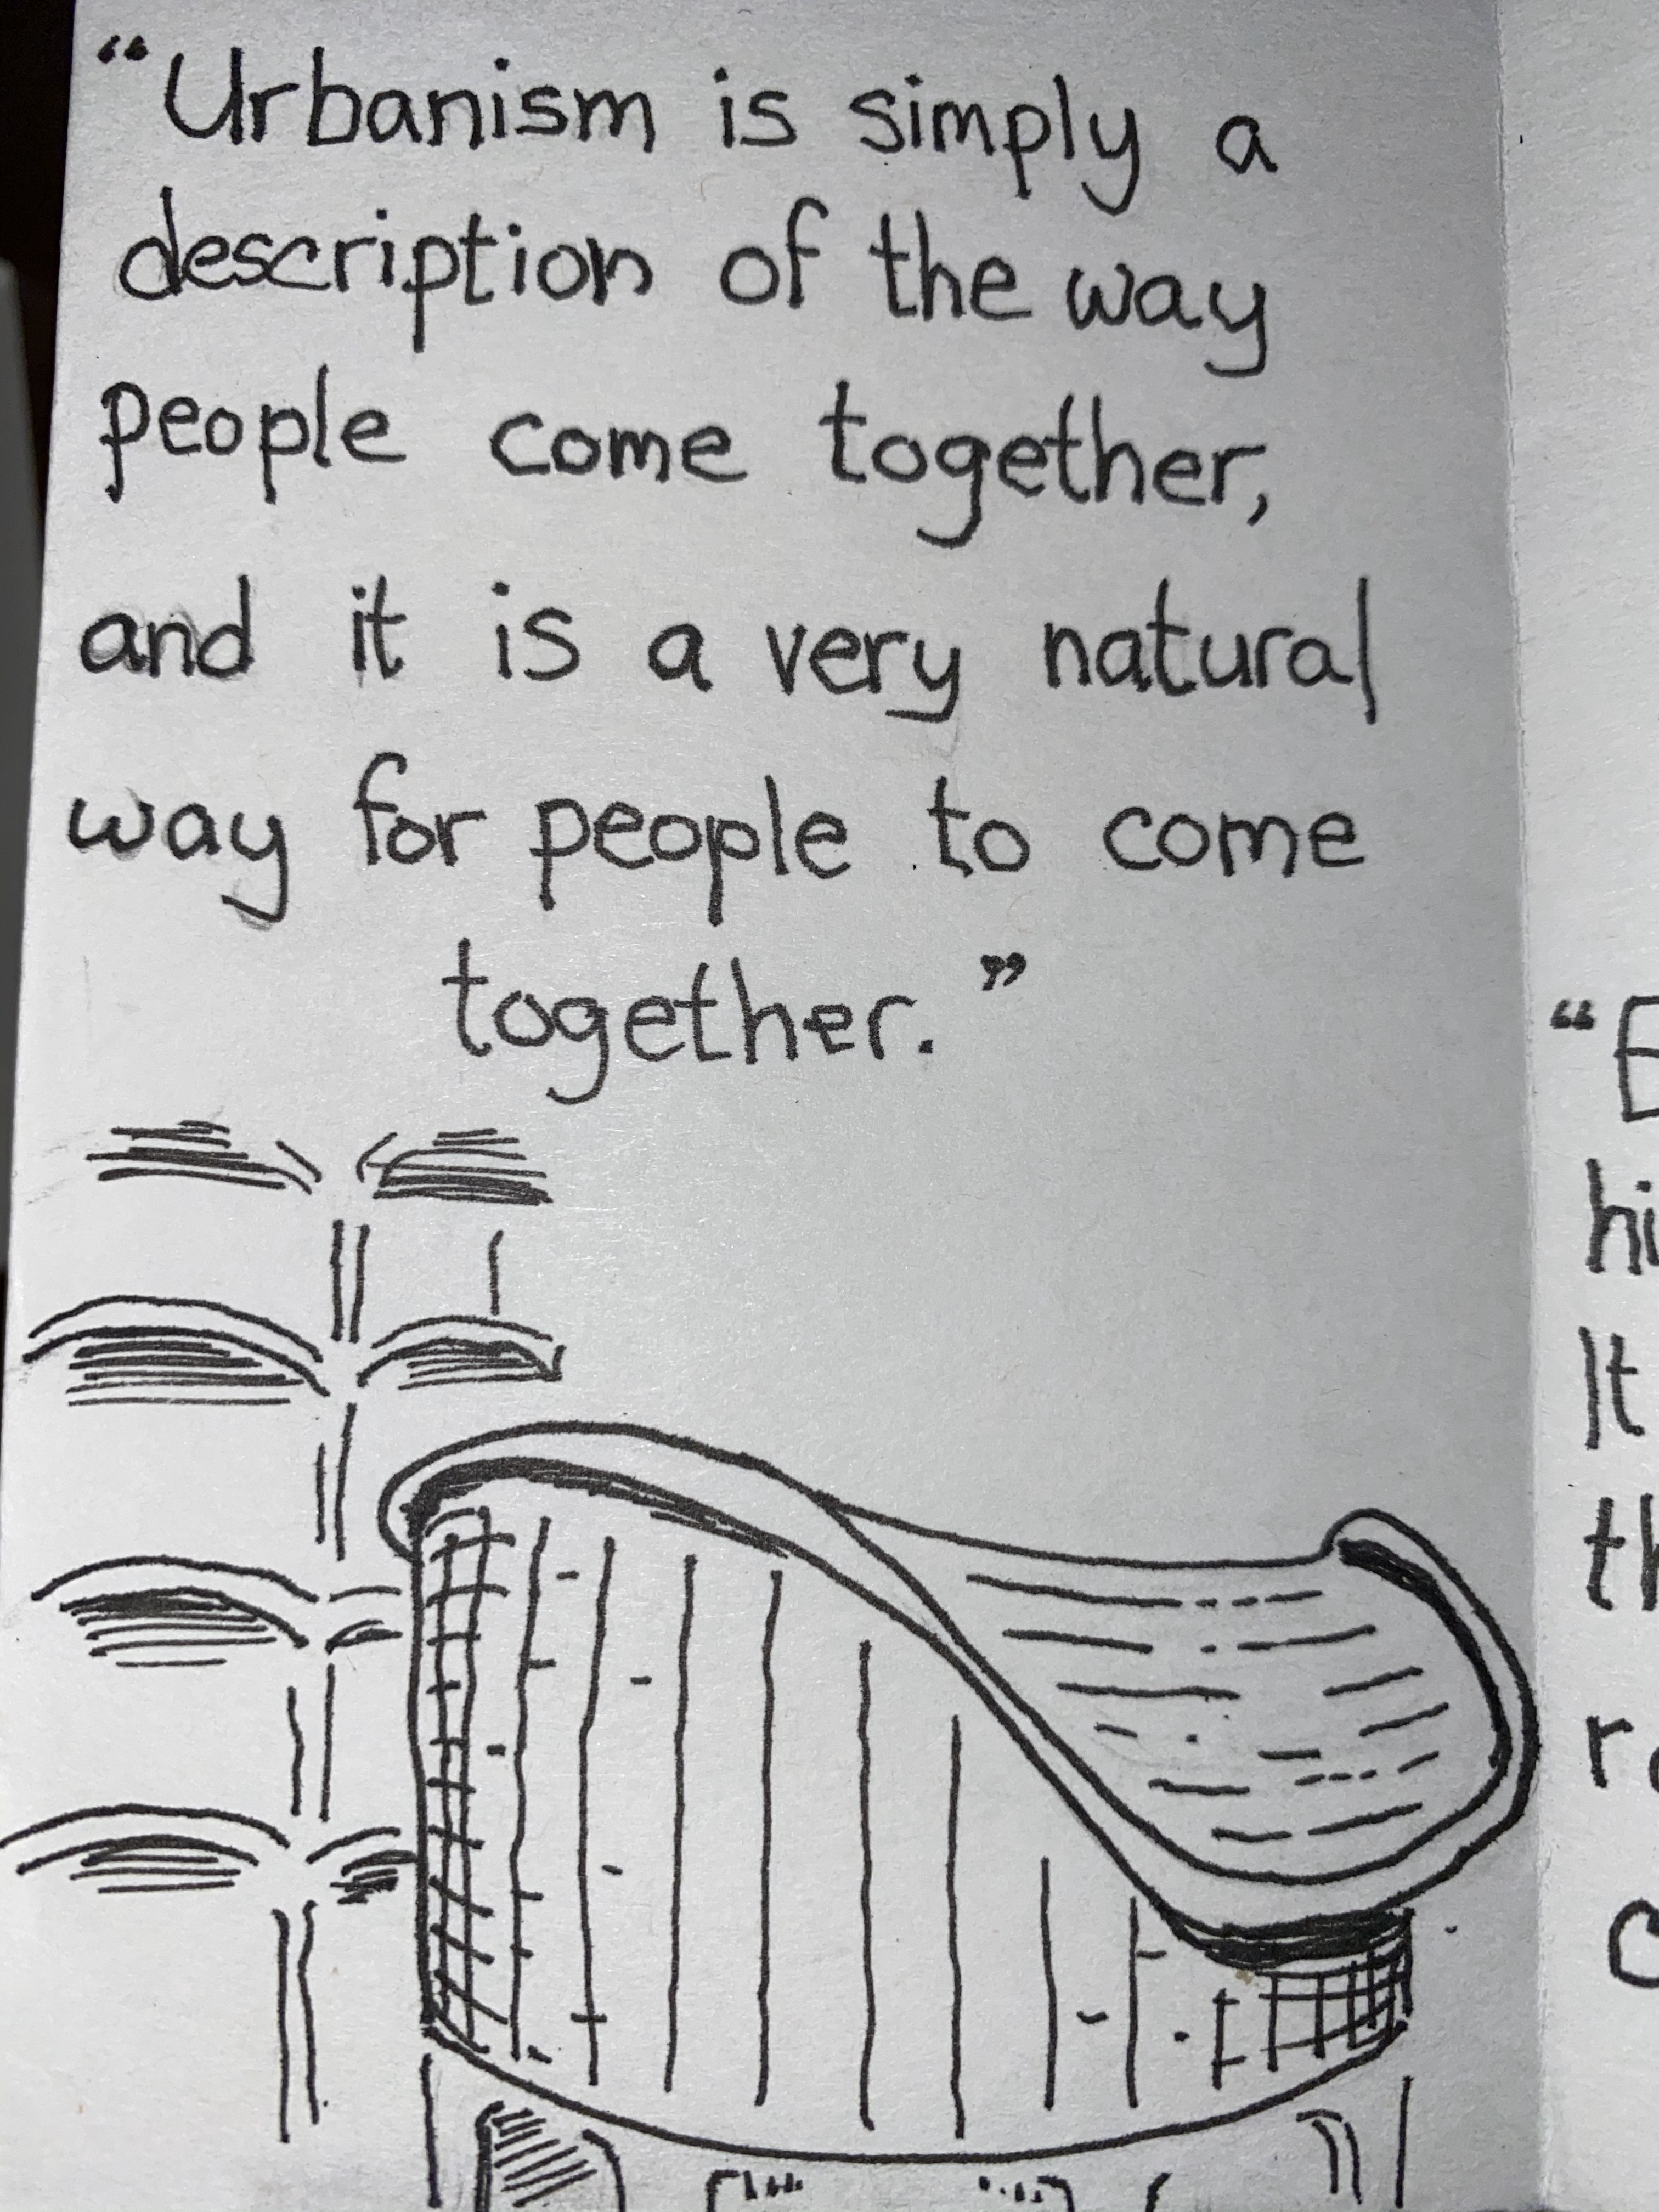 “Urbanism is simply a
description of the way
people come together,
and it is a very natural
way for people to come
together.”
“E
hi
It
th